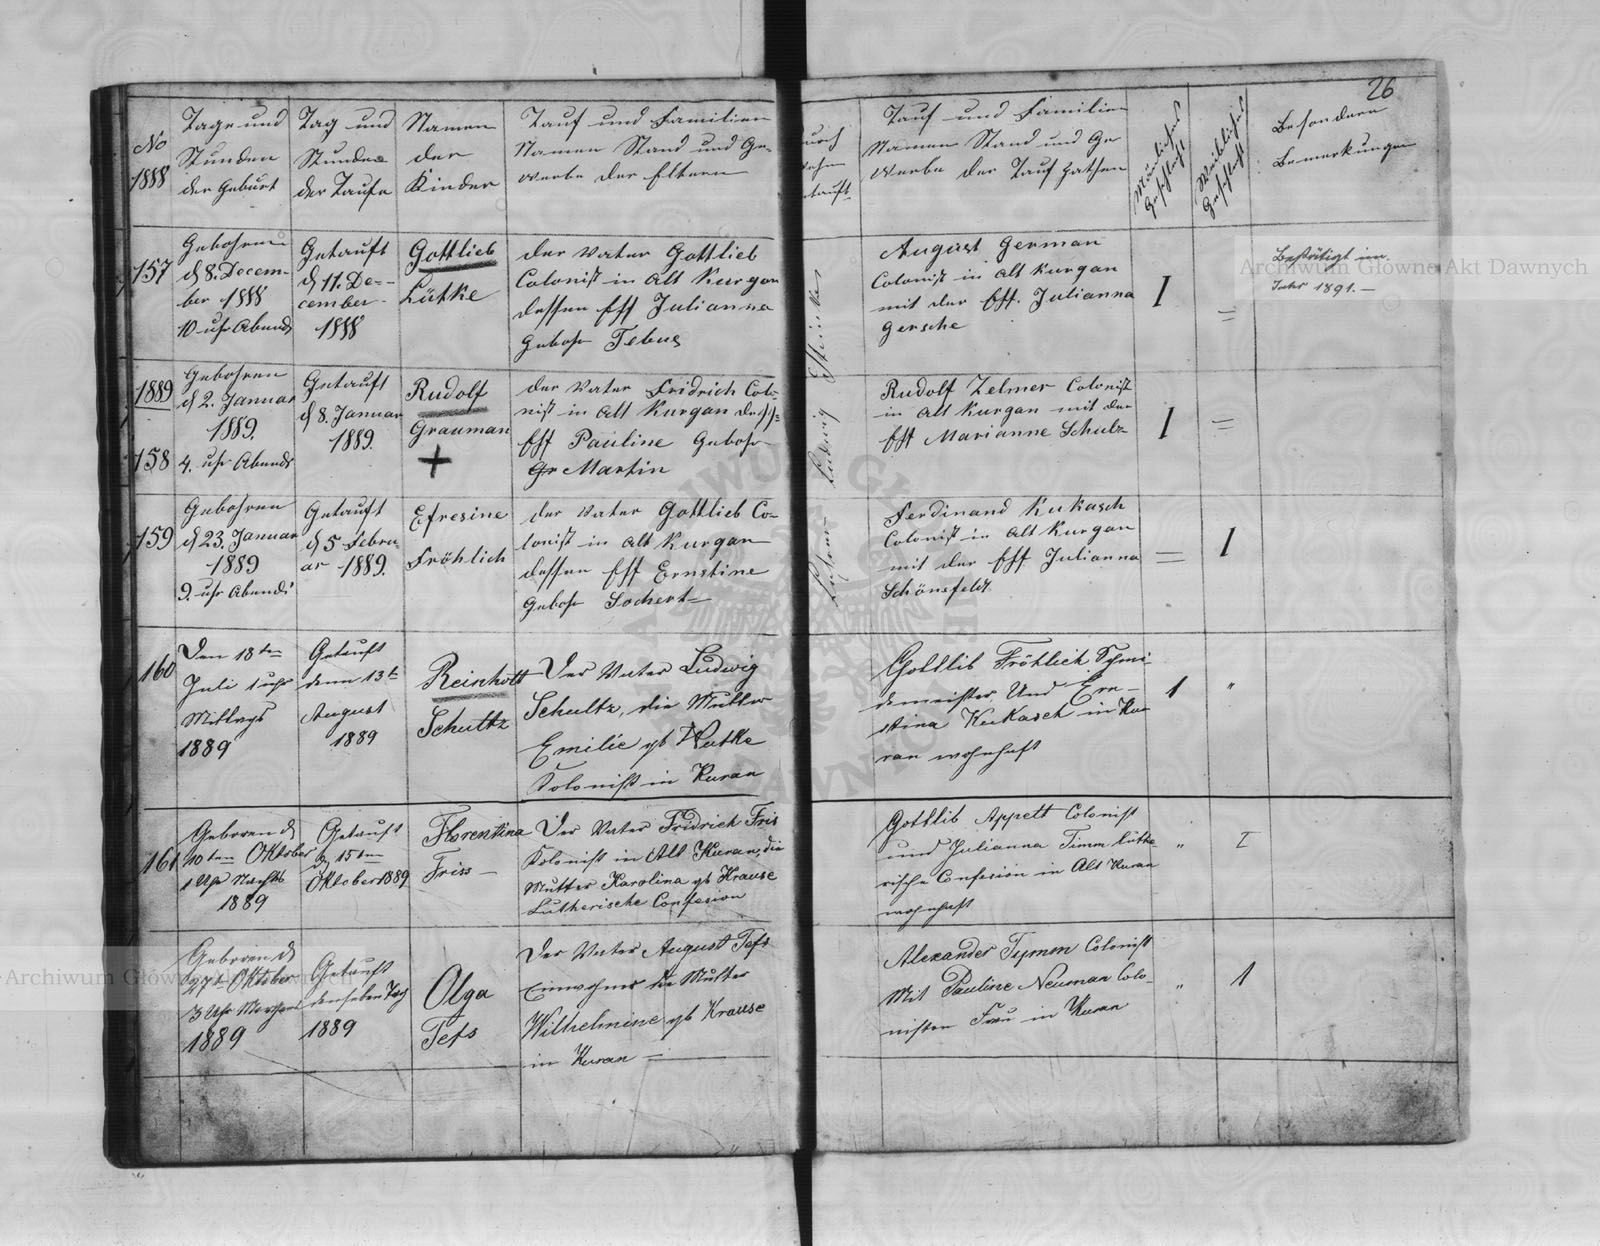 26
No
1888
Tage und
Stunden
der Geburt
Tag und
Stunde
der Taufe
Namen
der
Kinder
Tauf und Familien
Namen Stand und Ge-
werbe der Eltern
durch
wehn
tauft
Tauf und Familien
Namen Stand und Ge
werbe der Tauf Pathen
Mänliches
Geschlecht
Weibliches
Geschlecht
Besondere
Bemerkungen
157
Gebohren
d 8. Decem-
ber 1888
10 uhr Abends
Getauft
d 11. De-
cember
1888
Gottlieb
Lütke
der Vater Gottlieb
Colonist in Alt Kurgan
dessen Eff Julianna
Geboh Tebus
August German
Colonist in Alt Kurgan
mit der Eff. Julianna
Gersche
I
=
Bestätigt im
Jahr 1891. —
1889
158
Gebohren
d 2. Januar
1889.
4. uhr Abends
Getauft
d 8. Januar
1889.
Rudolf
Grauman
+
der Vater Fridrich Colo-
nist in Alt Kurgan dess=
Eff Pauline Geboh
Gr Martin
Ludwig
Rudolf Zelmer Colonist
in Alt Kurgan mit der
Eff Marianne Schulz
I
=
159
Gebohren
d 23. Januar
1889
9. uhr Abends
Getauft
d 5 Febru-
ar 1889.
Efresine
Fröhlich
der Vater Gottlieb Co-
lonist in Alt Kurgan
dessen Eff Ernstine
Geboh Sochert
Ferdinand Kukasch
Colonist in Alt Kurgan
mit der Eff Julianna
Schönsfeldt
=
I
160
Den 18ten
Juli 1 uhr
Mittags
1889
Getauft
denn 13t
August
1889
Reinholt
Schultz
Der Vater Ludwig
Schultz, die Mutter
Emilie gb Wutke
Kolonist in Kuran
Gottlib Fröhlich Schmi-
demeister Und Ern-
stina Kukasch in Ku
ran wohnhaft
1
"
161
Geboren d
10ten Oktober
1 Uhr Nachts
1889
Getauft
d 15ten
Oktober 1889
Florentina
Friss —
Der Vater Fridrich Fris
Kolonist in Alt Kuran, die
Mutter Karolina gb Krause
Lutherische Confesion
Gottlib Appelt Colonist
und Julianna Timm luthe
rische Confesion in Alt Kuran
wohnhaft
"
I
Geboren d
27t Oktober
3 Uhr Morgens
1889
Getauft
denselben Tag
1889
Olga
Tefs
Der Vater August Tefs
Einwohner die Mutter
Wilhelmine gb Krause
in Kuran —
Alexander Tymm Colonist
Mit Pauline Neuman Colo-
nisten Frau in Kuran
"
1
Archiwum Główne Akt Dawnych
Archiwum Główne Akt Dawnych
ARCHIWUM GŁÓWNE AKT DAWNYCH